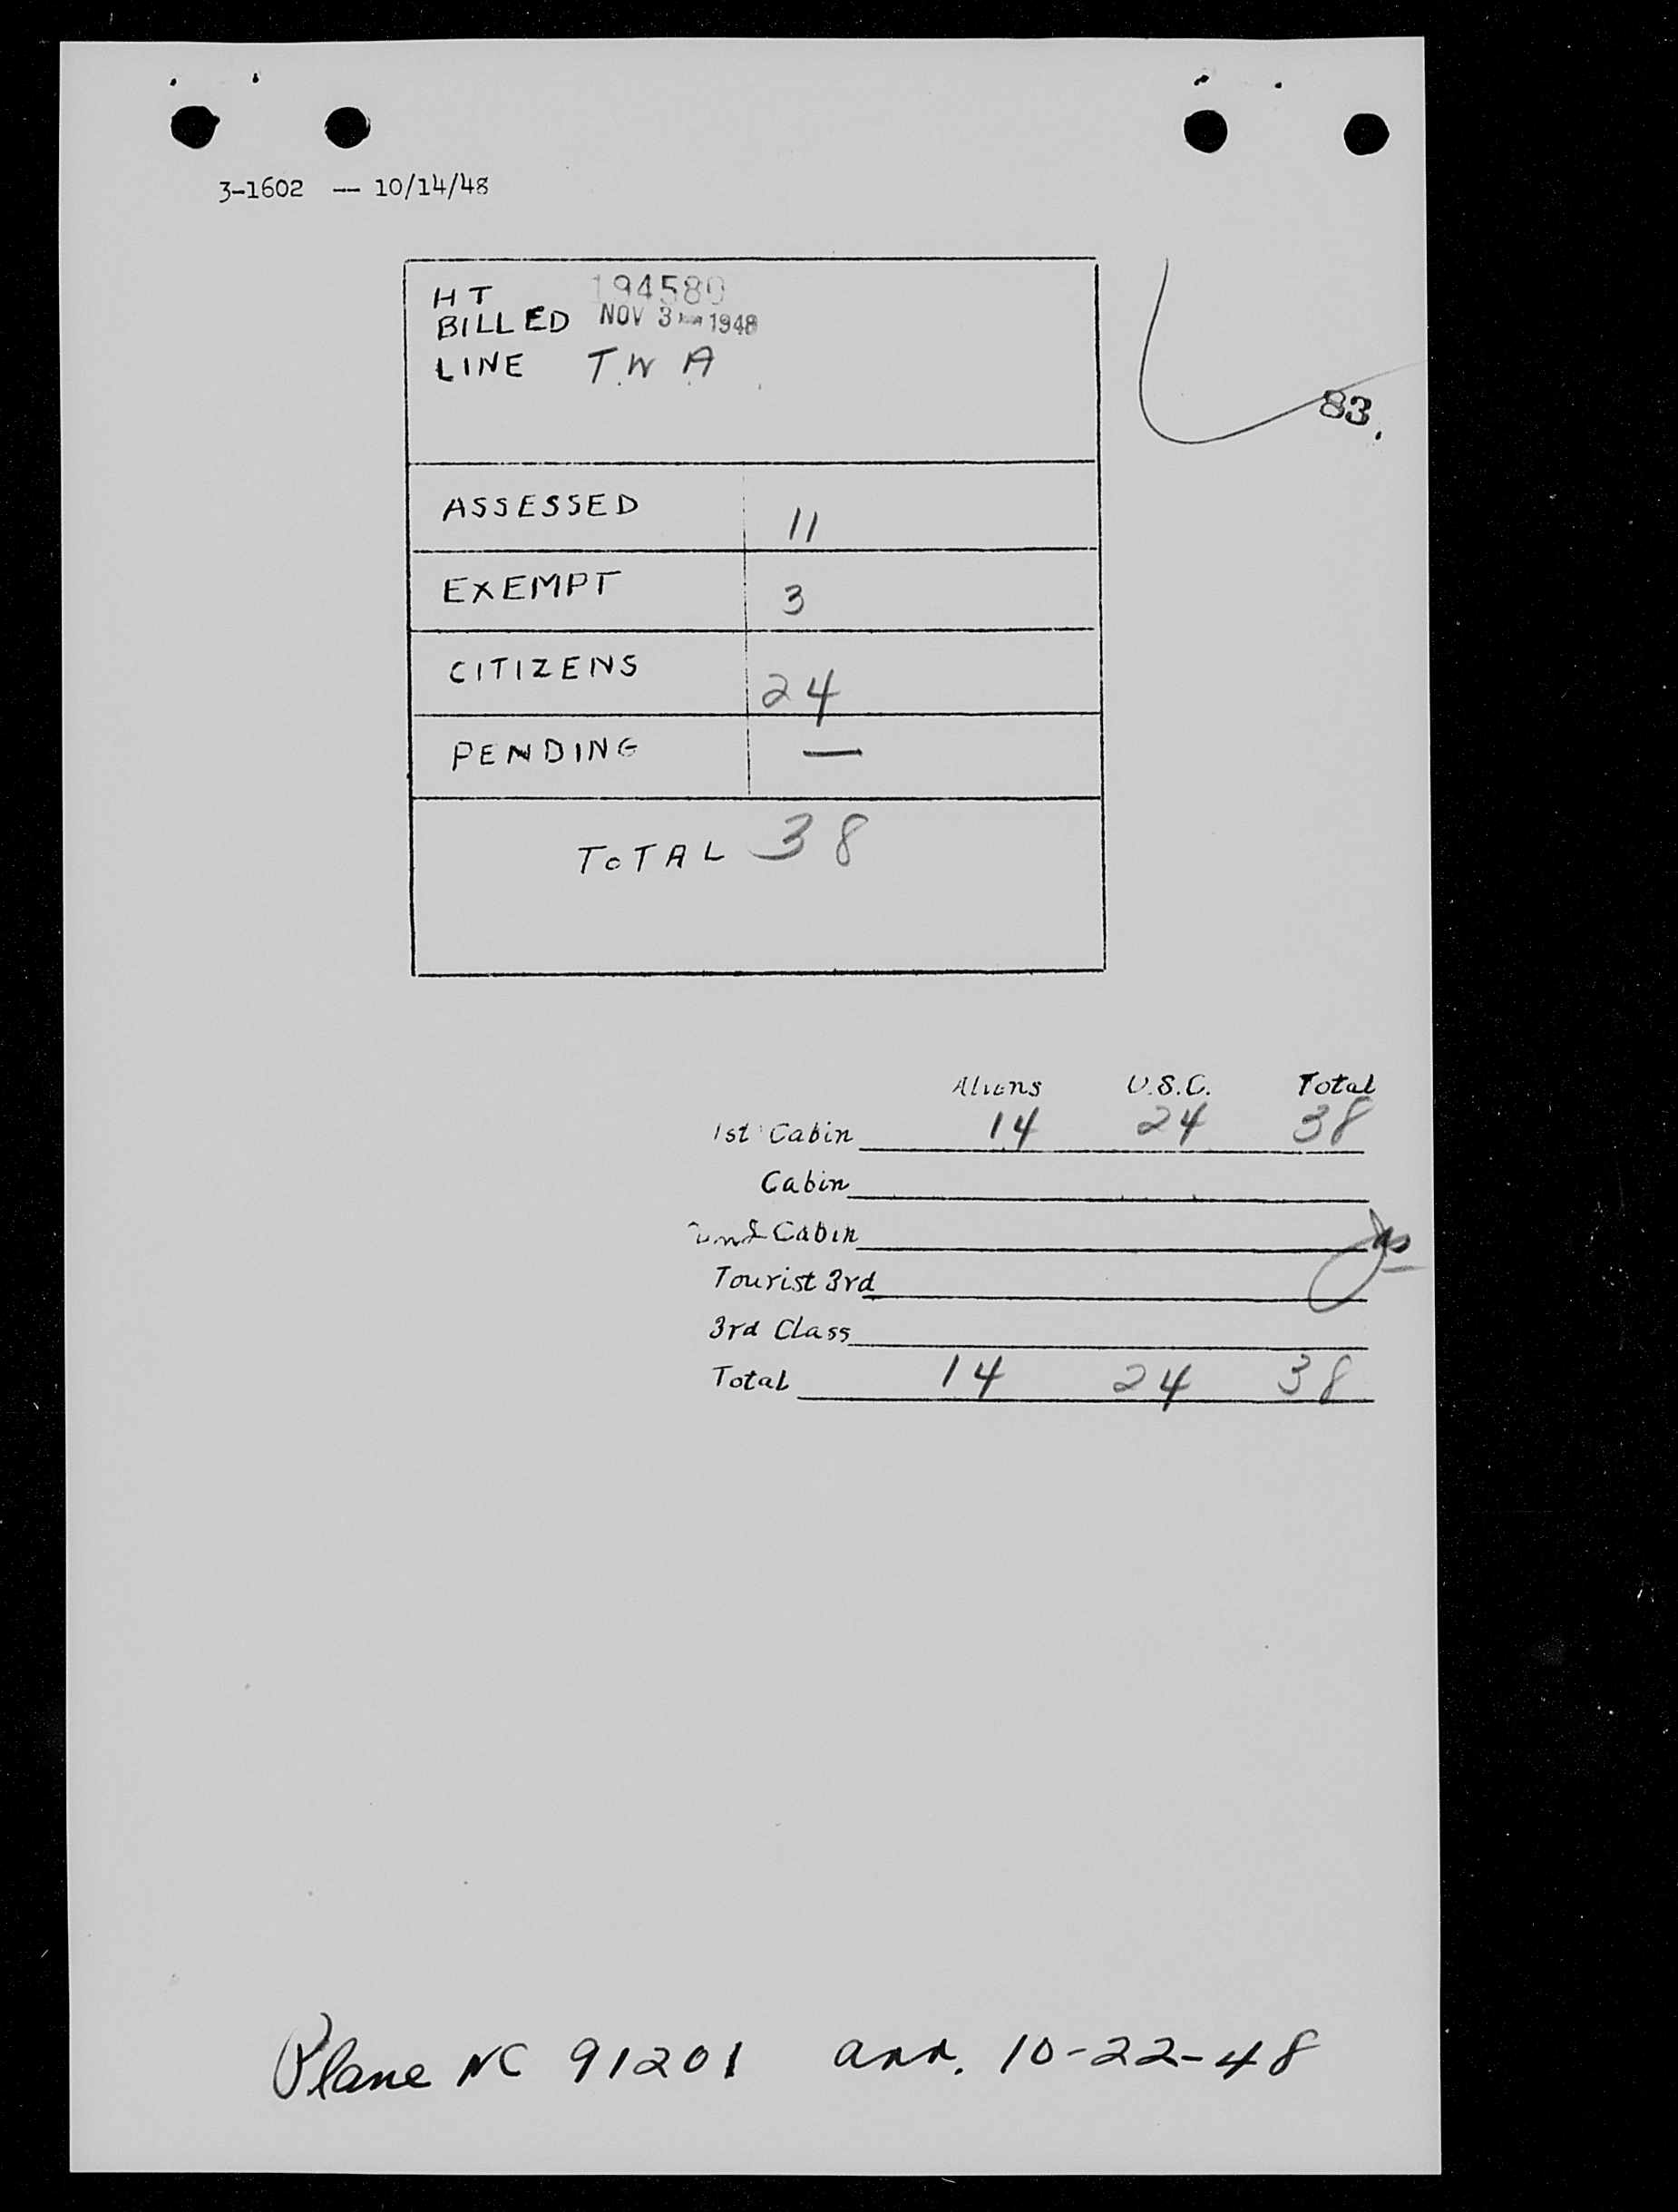 3-1602 — 10/14/48
HT 194580
BILLED NOV 3 1948
LINE T.W.A.
83.
ASSESSED 11
EXEMPT 3
CITIZENS 24
PENDING —
TOTAL 38
Aliens U.S.C. Total
1st Cabin 14 24 38
Cabin
Cabin
Tourist 3rd
3rd Class
Total 14 24 38
Plane NC 91201 arr. 10-22-48